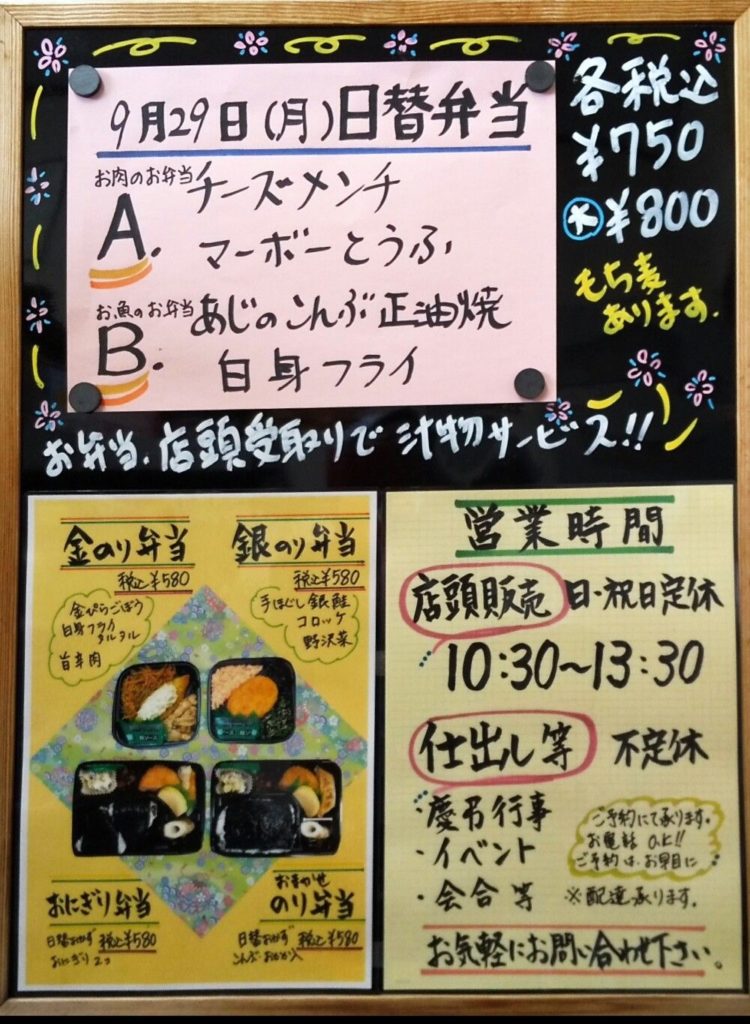 9月29日(月)日替弁当
お肉のお弁当
A.
チーズメンチ
マーボーとうふ
お魚のお弁当
B.
あじのこんぶ正油焼
白身フライ
各税込
¥750
大¥800
もち麦
あります.
お弁当、店頭受取りで汁物サービス!!
金のり弁当
税込¥580
金ぴらごぼう
白身フライ
タルタル
旨辛肉
銀のり弁当
税込¥580
手ほぐし銀鮭
コロッケ
野沢菜
おにぎり弁当
日替おかず
おにぎり2コ
税込¥580
おまかせ
のり弁当
日替おかず
こんぶ・おかか入
税込¥580
営業時間
店頭販売 日・祝日定休
10:30〜13:30
仕出し等 不定休
・慶弔行事
・イベント
・会合等
ご予約にて承ります。
お電話 OK!!
ご予約は、お早目に
※配達承ります。
お気軽にお問い合わせ下さい。